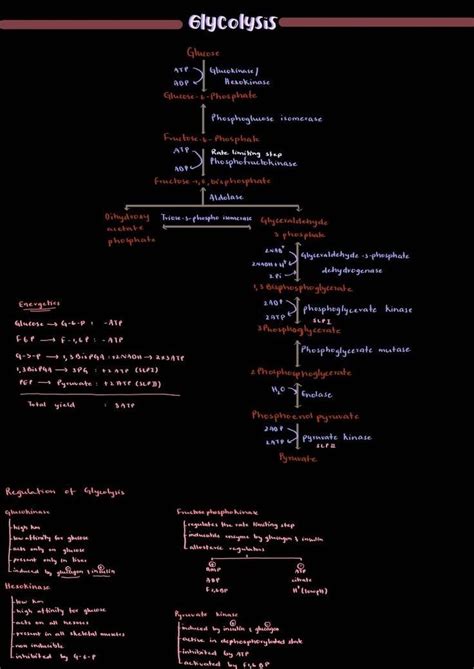 Glycolysis
Glucose
ATP
ADP
Glucokinase/
Hexokinase
Glucose-6-Phosphate
Phosphoglucose isomerase
Fructose-6-Phosphate
ATP
ADP
Rate limiting step
Phosphofructokinase
Fructose-1,6,bisphosphate
Aldolase
Dihydroxy
acetate
phosphate
Triose-3-phospho isomerase
Glyceraldehyde
3 phosphate
2NAD+
2NADH+H+
2Pi
Glyceraldehyde-3-phosphate
dehydrogenase
1,3Bisphosphoglycerate
2ADP
2ATP
phosphoglycerate kinase
SLP I
3Phosphoglycerate
Phosphoglycerate mutase
2Phosphoglycerate
H2O
Enolase
Phosphoenol pyruvate
2ADP
2ATP
pyruvate kinase
SLP II
Pyruvate
Energetics
Glucose → G-6-P : -ATP
F6P → F-1,6P : -ATP
G-3-P → 1,3BisPGA : +2NADH →
1,3BisPGA → 3PG : +2ATP (SLP I)
PEP → Pyruvate : +2ATP (SLP II)
Total yield :
Regulation of Glycolysis
Glucokinase
high km
low affinity for glucose
acts only on glucose
present only in liver
induced by glucagon & insulin
Hexokinase
low km
high affinity for glucose
acts on all hexoses
present in all skeletal muscles
non inducible
inhibited by G-6-P
Fructophosphokinase
regulates the rate limiting step
inducible enzyme by glucagon & insulin
allosteric regulators
AMP
ADP
ATP
citrate
H+
Pyruvate kinase
induced by insulin & glucagon
active in dephosphorylated state
inhibited by ATP
activated by F1,6BP